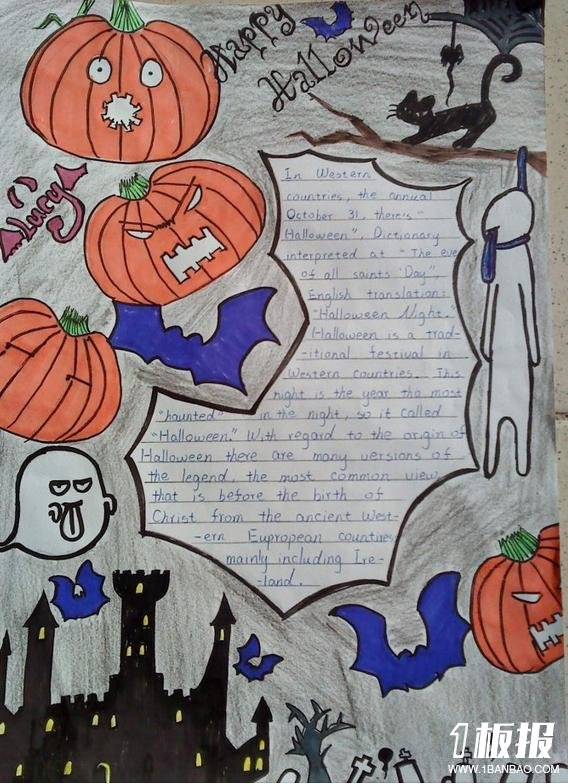 Happy
Halloween
Lucy
In Western
countries, the annual
October 31, there's "
Halloween", Dictionary
interpreted at "The eve
of all saints 'Day",
English translation:
"Halloween Night."
Halloween is a trad-
-itional festival in
Western countries. This
night is the year the most
"haunted" in the night, so it called
"Halloween." With regard to the origin of
Halloween there are many versions of
the legend, the most common view
that is before the birth of
Christ from the ancient West-
-ern Eupropean countries
mainly including Ire-
-land.
1板报
WWW.1BANBAO.COM